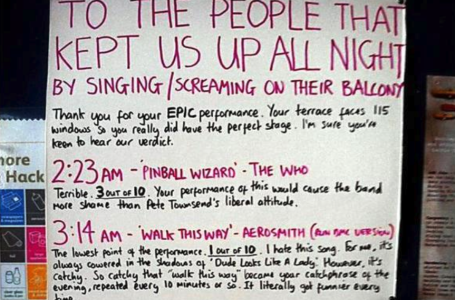 TO THE PEOPLE THAT
KEPT US UP ALL NIGHT
BY SINGING/SCREAMING ON THEIR BALCONY
Thank you for your EPIC performance. Your terrace faces 115
windows so you really did have the perfect stage. I'm sure you're
keen to hear our verdict.
2:23AM - 'PINBALL WIZARD' - THE WHO
Terrible. 3 OUT OF 10. Your performance of this would cause the band
more shame than Pete Townsend's liberal attitude.
3:14 AM - 'WALK THIS WAY' - AEROSMITH (RUN DMC VERSION)
The lowest point of the performance. 1 out of 10. I hate this song. For me, it's
always covered in the shadows of 'Dude Looks Like A Lady'. However, it's
catchy. So catchy that "walk this way" became your catchphrase of the
evening, repeated every 10 minutes or so. It literally got funnier every
more
Hack